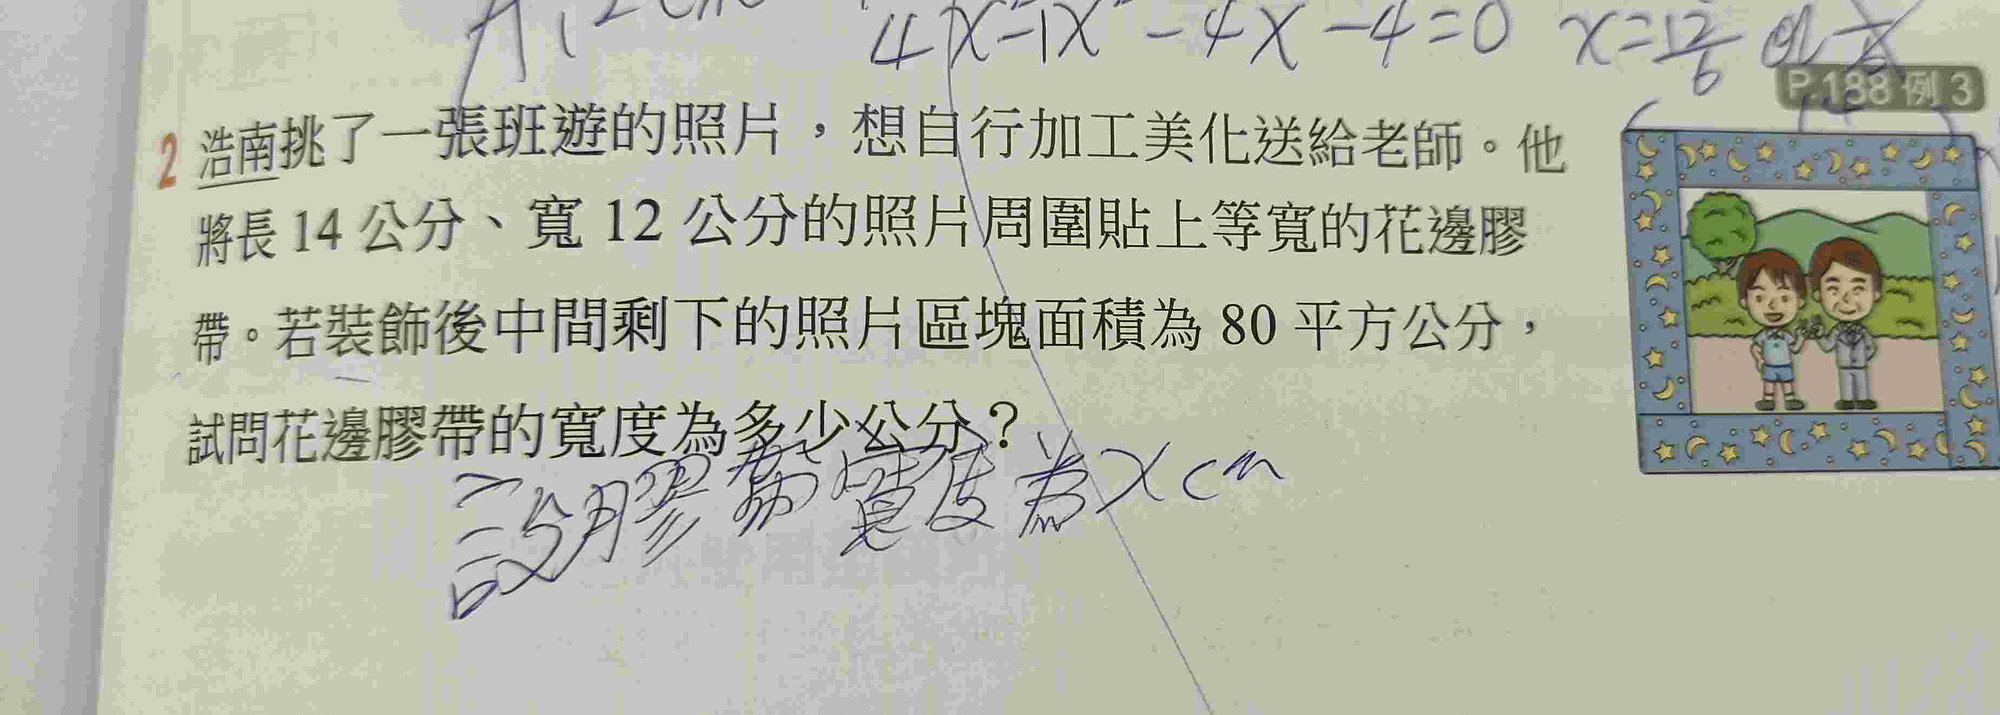 4x=1x²-4x-4=0 x=12/6
P.188 例 3
2 浩南挑了一張班遊的照片，想自行加工美化送給老師。他
將長 14 公分、寬 12 公分的照片周圍貼上等寬的花邊膠
帶。若裝飾後中間剩下的照片區塊面積為 80 平方公分，
試問花邊膠帶的寬度為多少公分？
設膠帶寬度為xcm